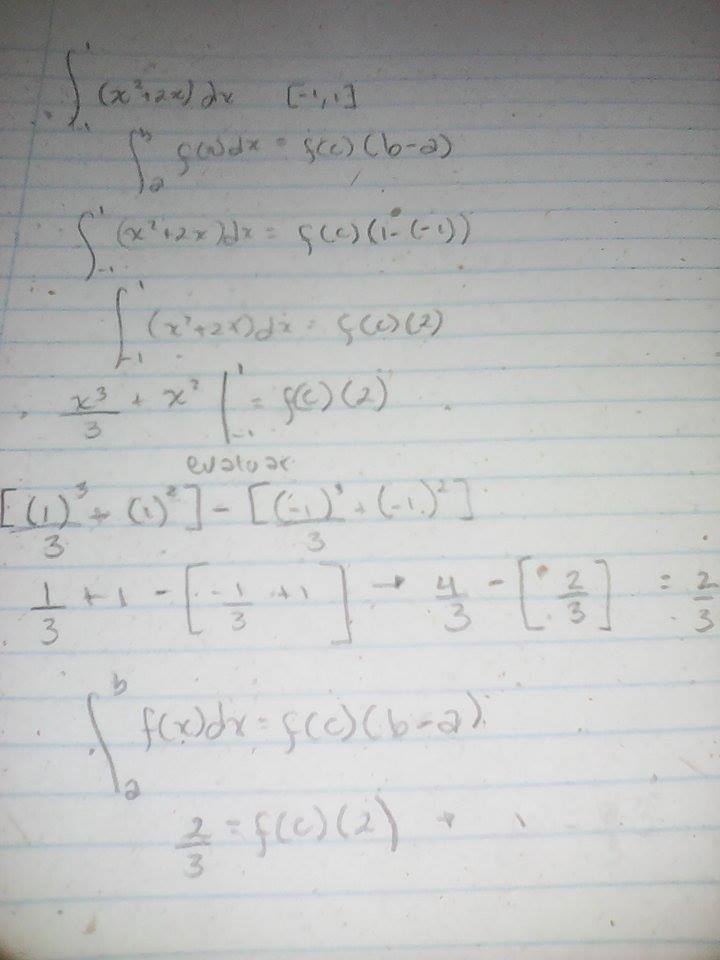 ∫₋₁¹ (x²+2x) dx [-1,1]
∫ₐᵇ f(x)dx = f(c) (b-a)
∫₋₁¹ (x²+2x)dx = f(c)(1-(-1))
∫₋₁¹ (x²+2x)dx = f(c)(2)
x³/3 + x² |₋₁¹ = f(c)(2)
evaluar
[(1)³/3 + (1)²] - [(-1)³/3 + (-1)²]
1/3 + 1 - [-1/3 + 1] → 4/3 - [2/3] = 2/3
∫ₐᵇ f(x)dx = f(c)(b-a)
2/3 = f(c)(2)